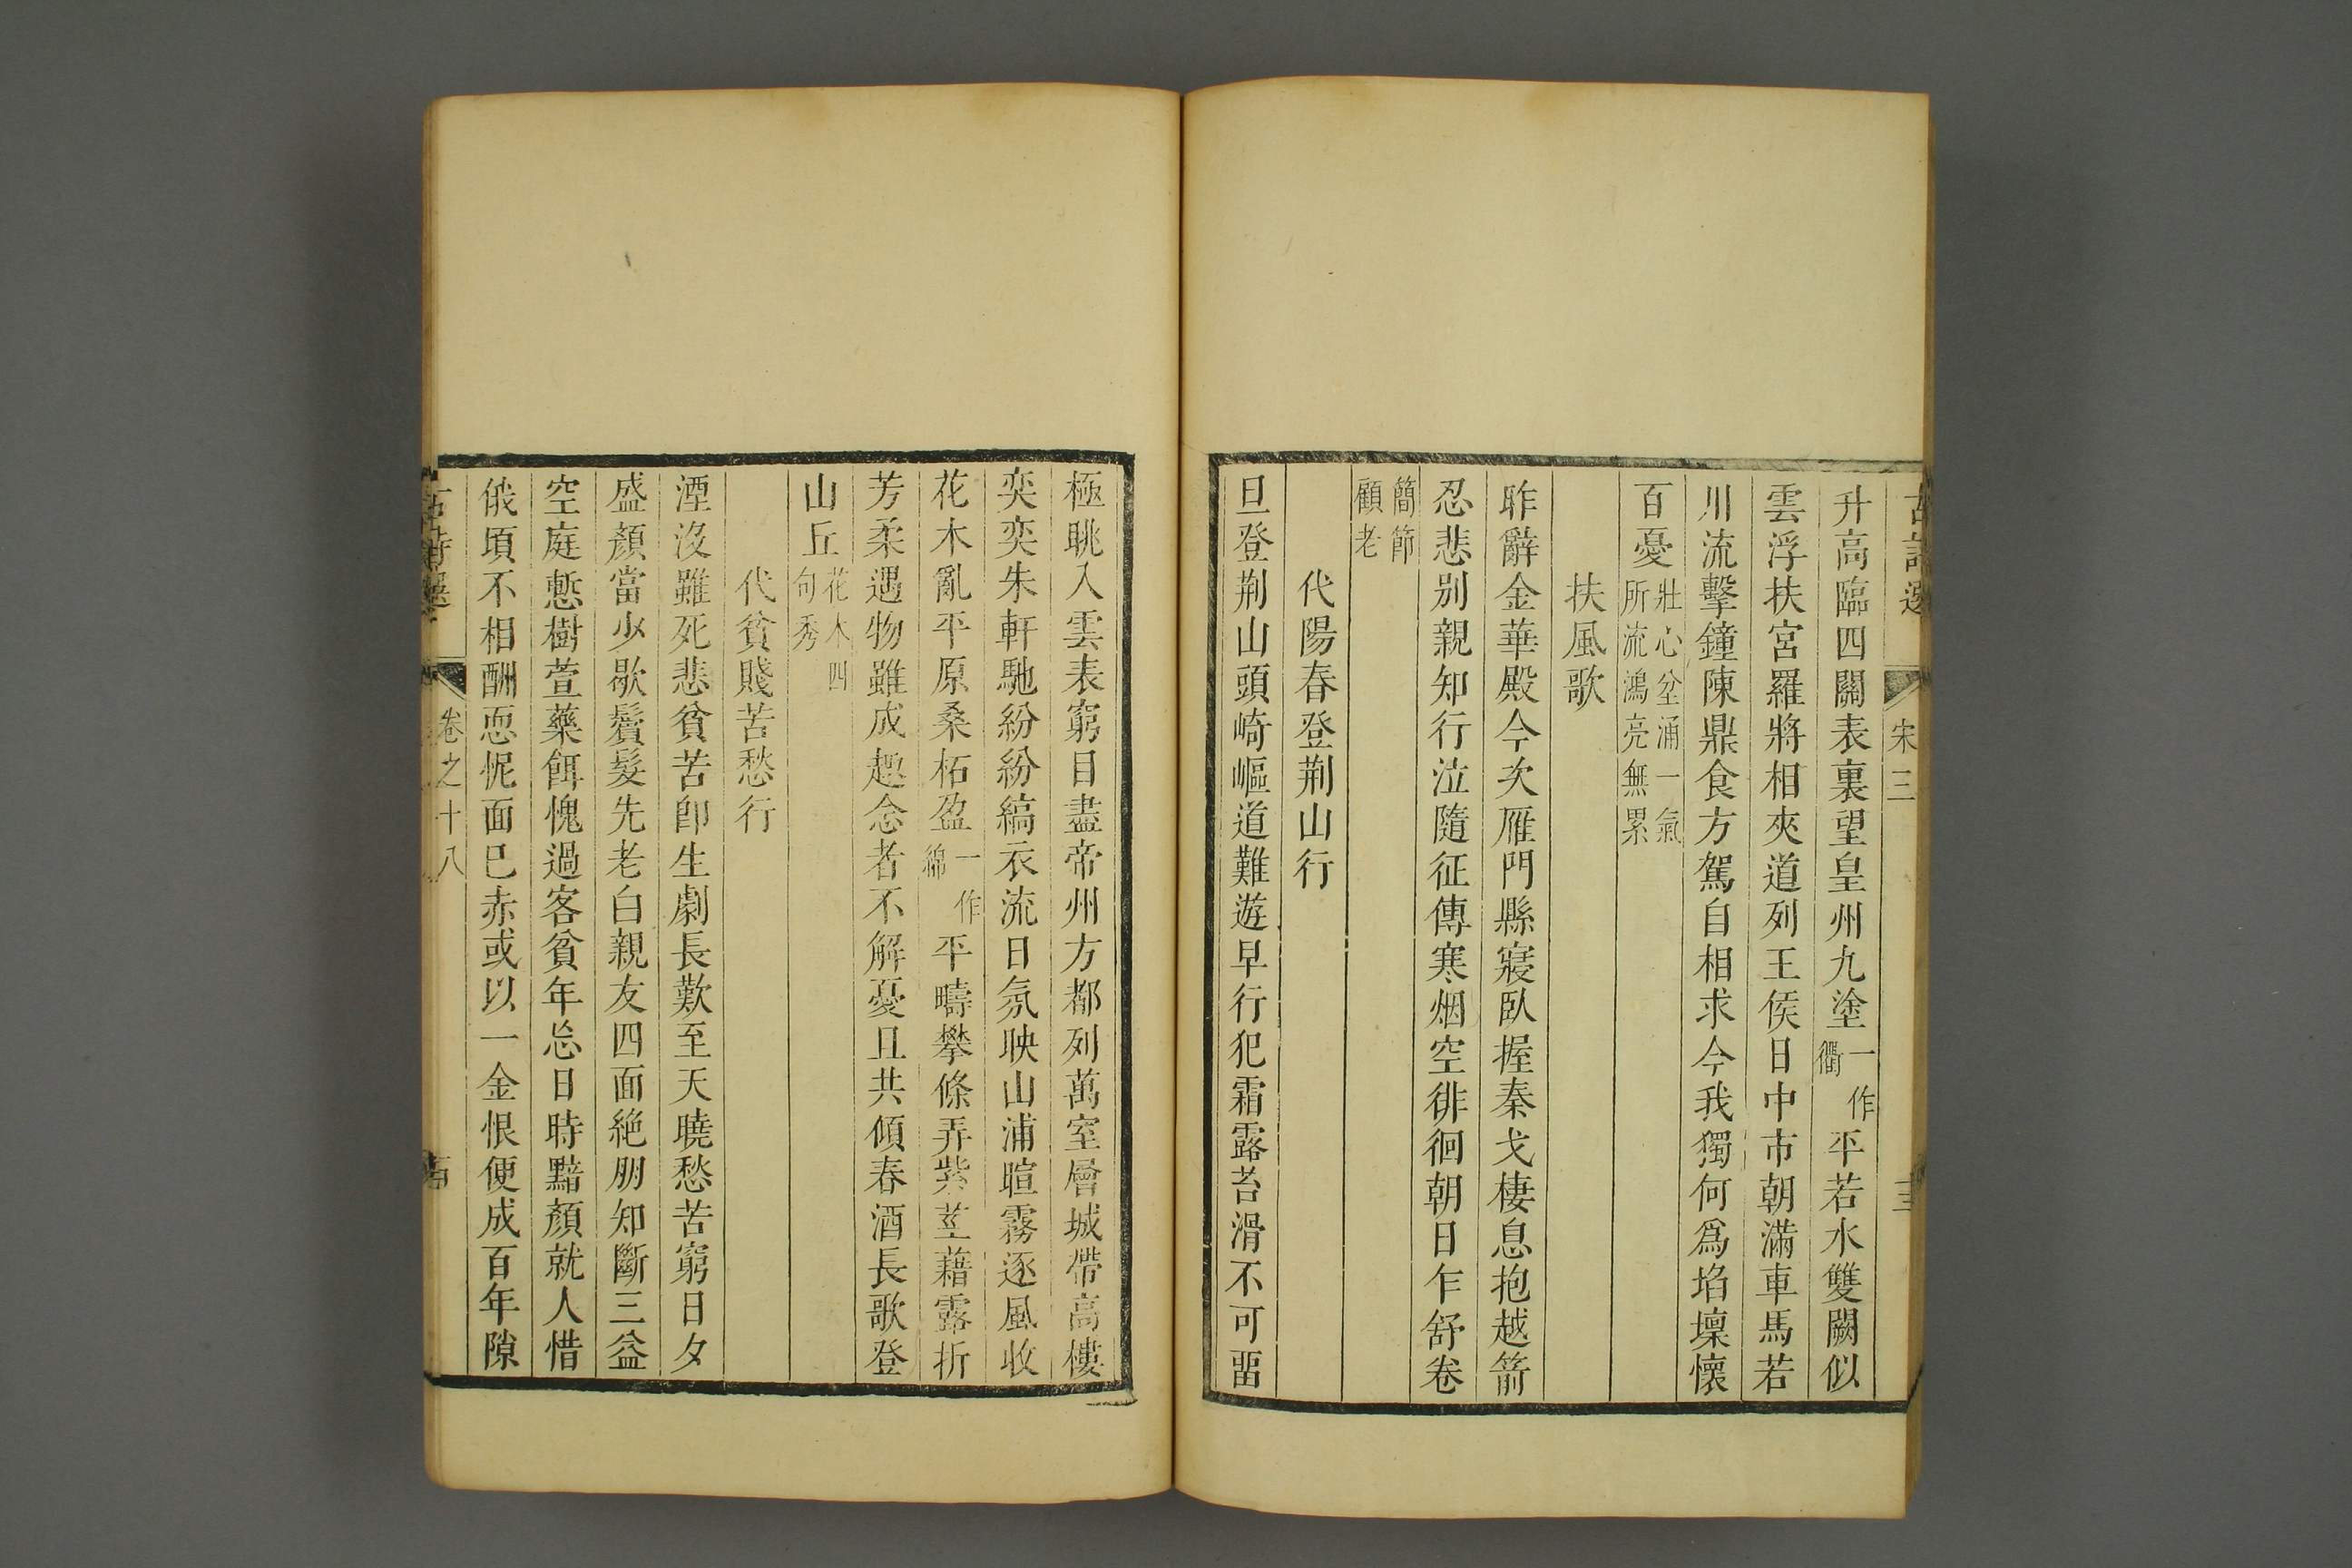 古詩選 宋三 十三
升高臨四關表裏望皇州九塗一作衢平若水雙闕似
雲浮扶宮羅將相夾道列王侯日中市朝滿車馬若
川流擊鐘陳鼎食方駕自相求今我獨何爲埳壈懷
百憂壯心坌涌一氣所流鴻亮無累
扶風歌
昨辭金華殿今次雁門縣寢臥握秦戈棲息抱越箭
忍悲別親知行泣隨征傳寒烟空徘徊朝日乍舒卷
簡節顧老
代陽春登荆山行
旦登荆山頭崎嶇道難遊早行犯霜露苔滑不可畱
極眺入雲表窮目盡帝州方都列萬室層城帶高樓
奕奕朱軒馳紛紛縞衣流日氛映山浦暄霧逐風收
花木亂平原桑柘盈一作綿平疇攀條弄紫莖藉露折
芳柔遇物雖成趣念者不解憂且共傾春酒長歌登
山丘花木四句秀
代貧賤苦愁行
湮沒雖死悲貧苦卽生劇長歎至天曉愁苦窮日夕
盛顏當少歇鬢髮先老白親友四面絶朋知斷三益
空庭慙樹萱藥餌愧過客貧年忘日時黯顏就人惜
俄頃不相酬恧怩面已赤或以一金恨便成百年隙
古詩選 卷之十八